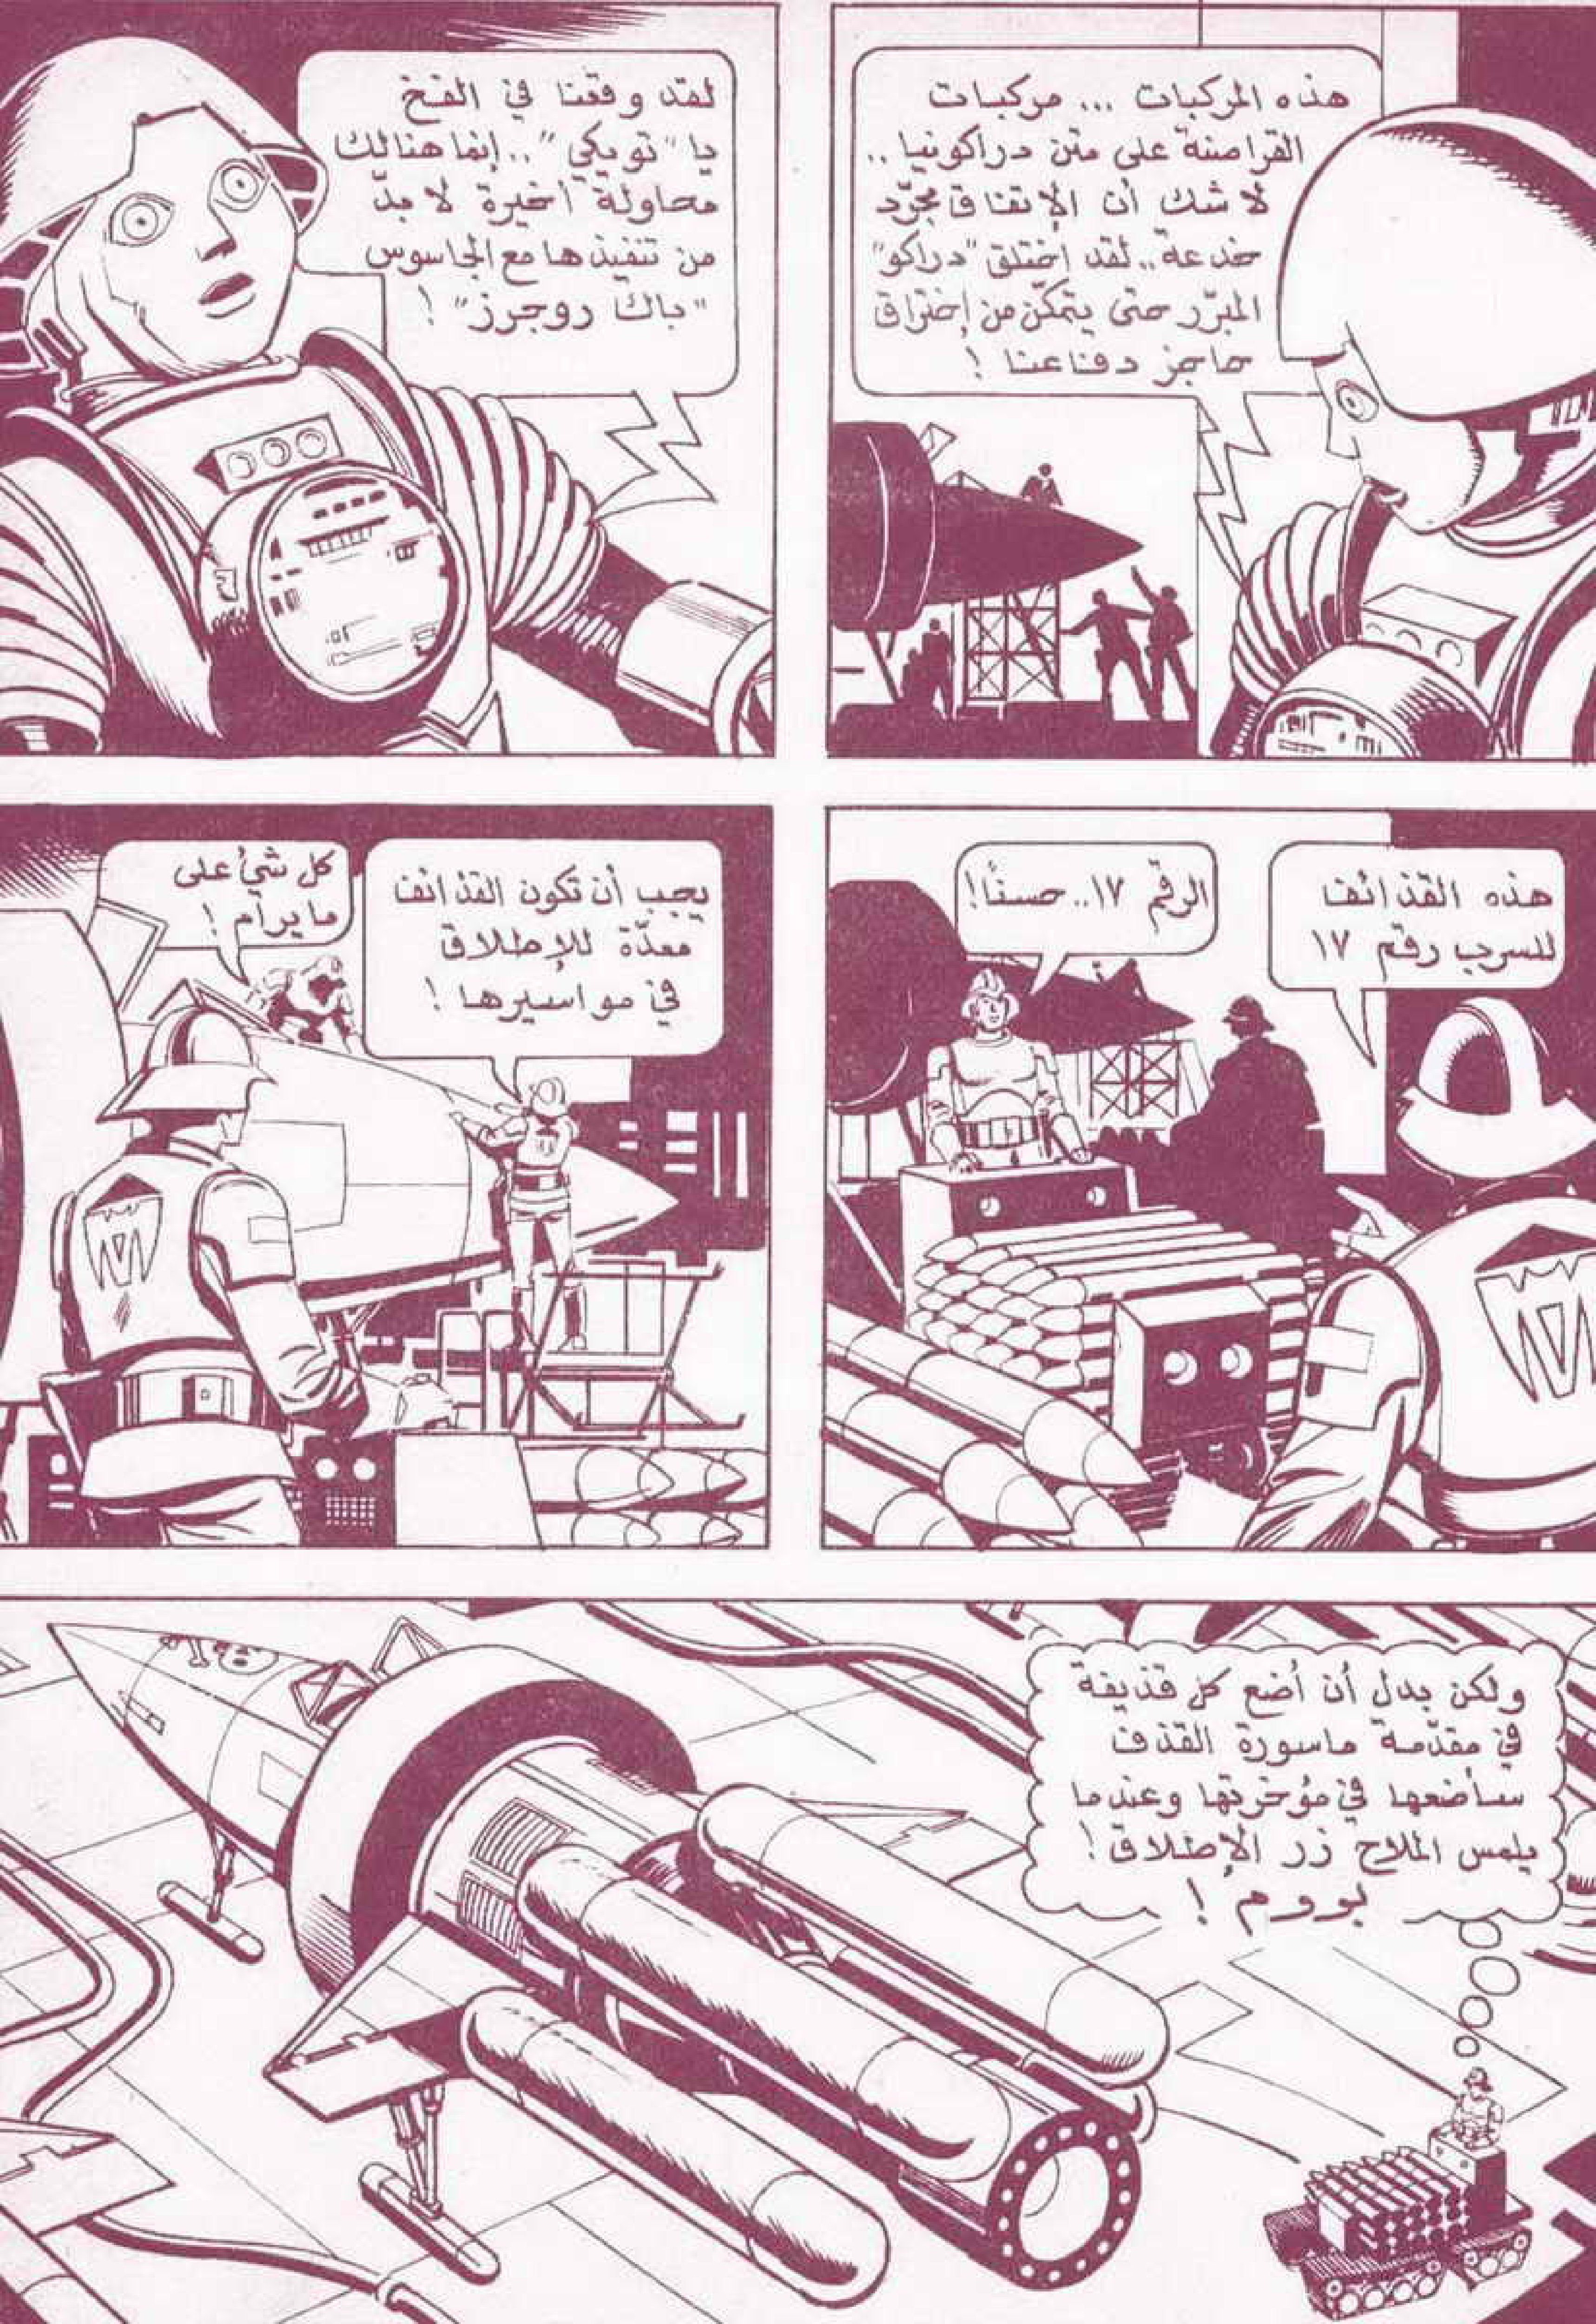 هذه المركبات ... مركبات
القراصنة على متن دراكونيا ..
لا شك أن الإتفاق مجرّد
خدعة .. لقد اختلق "دراكو"
المبرّر حتى يتمكّن من إختراق
حاجز دفاعنا !
لقد وقعنا في الفخ
يا "تويكي" .. إنما هنالك
محاولة أخيرة لا بدّ
من تنفيذها مع الجاسوس
"باك روجرز" !
هذه القذائف
للسرب رقم ١٧
الرقم ١٧ .. حسنًا !
يجب أن تكون القذائف
معدّة للإطلاق
في مواسيرها !
كل شيء على
ما يرام !
ولكن بدل أن أضع كل قذيفة
في مقدّمة ماسورة القذف
سأضعها في مؤخرتها وعندما
يلمس الملاح زر الإطلاق !
بووم !